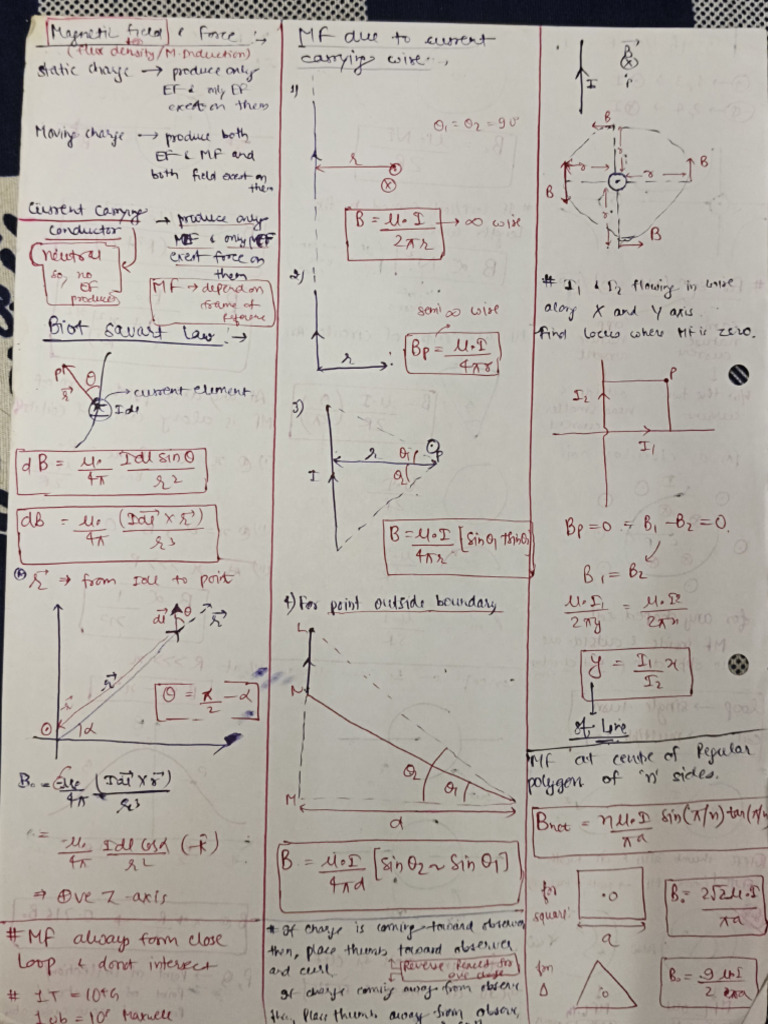 Magnetic field & Force :-
(flux density/M.Induction)
static charge → produce only
EF & only EF
exert on them
Moving charge → produce both
EF & MF and
both field exert on
them
Current Carrying → produce only
Conductor
MF & only MF
exert force on
them
Neutral
so, no
EF
produces
MF → depend on
frame of
reference
Biot Savart law :→
P
θ
r⃗
→ current element
Idl
dB = μ₀/4π Idl sinθ/r²
dB = μ₀/4π (Idl⃗ × r⃗)/r³
r⃗ → from Idl to point
dl⃗
θ
r⃗
r⃗
θ = π/2 - α
α
B₀ = -μ₀/4π (Idl⃗ × r⃗)/r³
= -μ₀/4π Idl cosα/r² (-k̂)
⇒ ⊕ve Z-axis
# MF always form close
loop & dont intersect
# 1T = 10⁴G
1wb = 10⁸ Maxwell
MF due to current
carrying wire :-
1)
θ₁ = θ₂ = 90°
r
B = μ₀I/2πr → ∞ wire
2)
semi ∞ wire
r
Bp = μ₀I/4πr
3)
I
r
θ₁
θ₂
P
B = μ₀I/4πr [sinθ₁ + sinθ₂
4) For point outside boundary
L
N
M
θ₂
θ₁
d
B = μ₀I/4πd [sinθ₂ ~ sinθ₁]
# If charge is coming toward observer
then, place thumb toward observer
and curl
If charge coming away from observe
then place thumb away from observe,
I
B⃗
P
B
r
r
r
r
B
B
B
# I₁ & I₂ flowing in wire
along X and Y axis.
find locus where MF is zero.
P
I₂
I₁
Bp = 0 = B₁ - B₂ = 0.
B₁ = B₂
μ₀I₁/2πy = μ₀I₂/2πx
y = I₁/I₂ x
st. Line
MF at centre of Regular
polygon of 'n' sides.
Bnet = nμ₀I/πa sin(π/n) tan(π/n
for
square:
·O
a
B₀ = 2√2μ₀I/πa
for
Δ
·O
B₀ = 9/2 μ₀I/πa